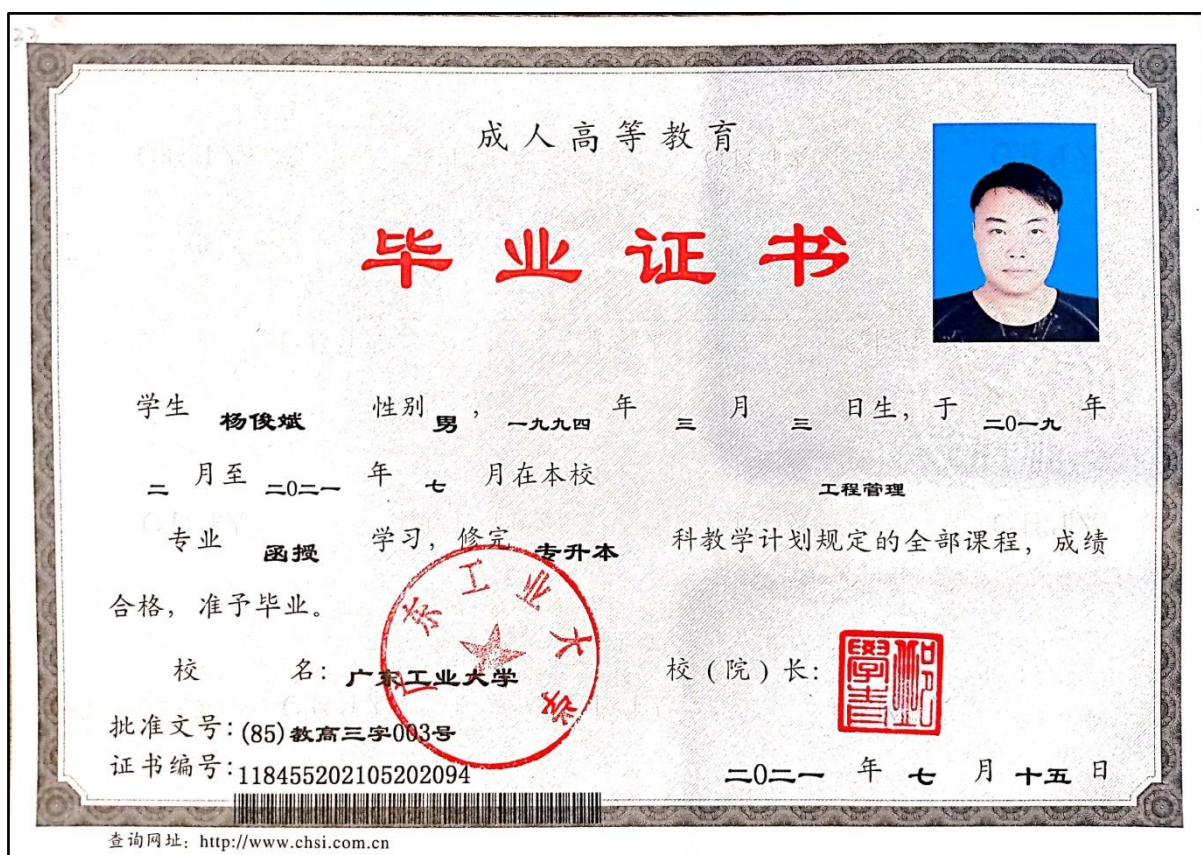 成人高等教育
毕业证书
学生 杨俊斌 性别 男 , 一九九四 年 三 月 三 日生, 于 二0一九 年
二 月至 二0二一 年 七 月在本校 工程管理
专业 函授 学习, 修完 专升本 科教学计划规定的全部课程, 成绩
合格, 准予毕业。
校 名: 广东工业大学 校(院)长:
广东工业大学
批准文号: (85)教高三字003号
证书编号: 118455202105202094
二0二一 年 七 月 十五 日
查询网址: http://www.chsi.com.cn